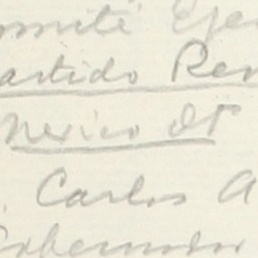 omité Eje
artido Rev
Mexico DF
. Carlos A
Gobernador